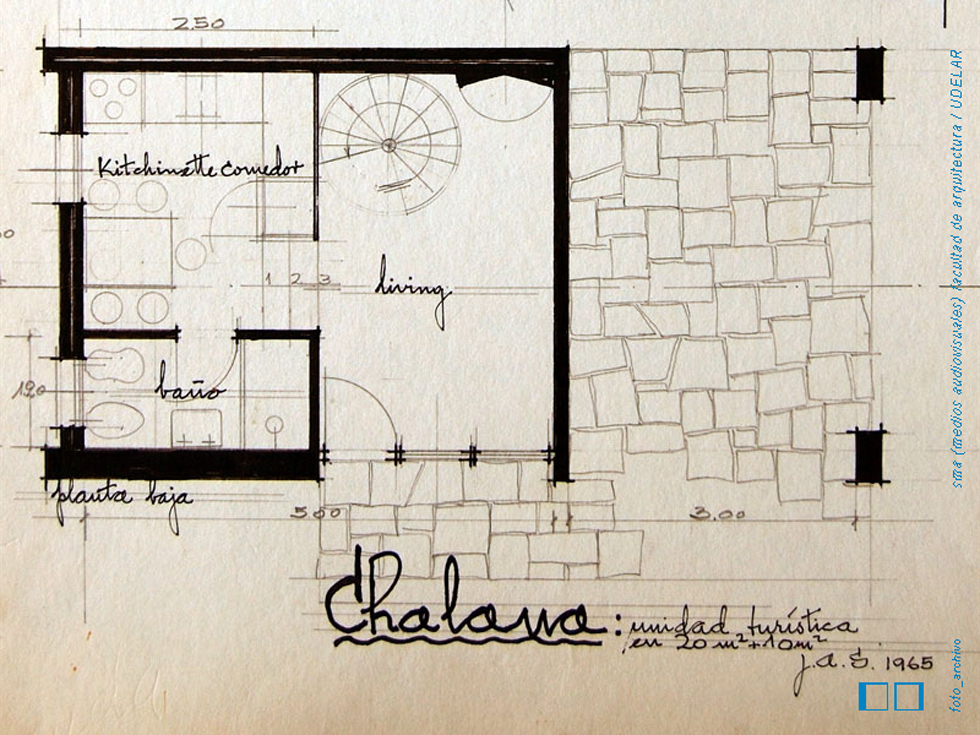 2.50
Kitchinette comedor
1 2 3
living
1.90
baño
planta baja
5.00
3.00
Chalana: unidad turística
en 20 m²+10 m²
J.A.S. 1965
sma (medios audiovisuales) facultad de arquitectura / UDELAR
foto_archivo